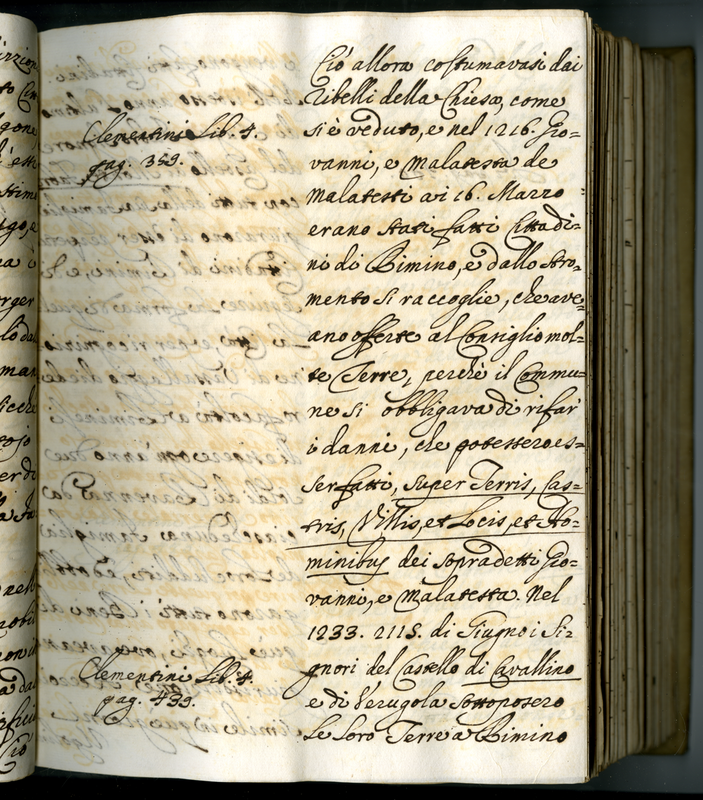 Ciò allora costumavasi dai
Ribelli della Chiesa, come
Clementini Lib. 4.
si è veduto, e nel 1216. Gio=
pag. 359.
vanni, e Malatesta de
Malatesti ai 16. Marzo
erano stati fatti Cittadi=
ni di Rimino, e dallo stro=
mento si raccoglie, che ave=
ano offerte al Consiglio mol=
te Terre, perchè il Commu=
ne si obbligava di rifar
i danni, che potessero es=
ser fatti, super Terris, Cas=
tris, Villis, et Locis, et Ho=
minibus dei sopradetti Gio=
vanni, e Malatesta. Nel
1233. di Giugno i Si=
Clementini Lib. 4.
gnori del Castello di Cavallino
pag. 439.
e di Verugola sottoposero
le loro Terre a Rimino